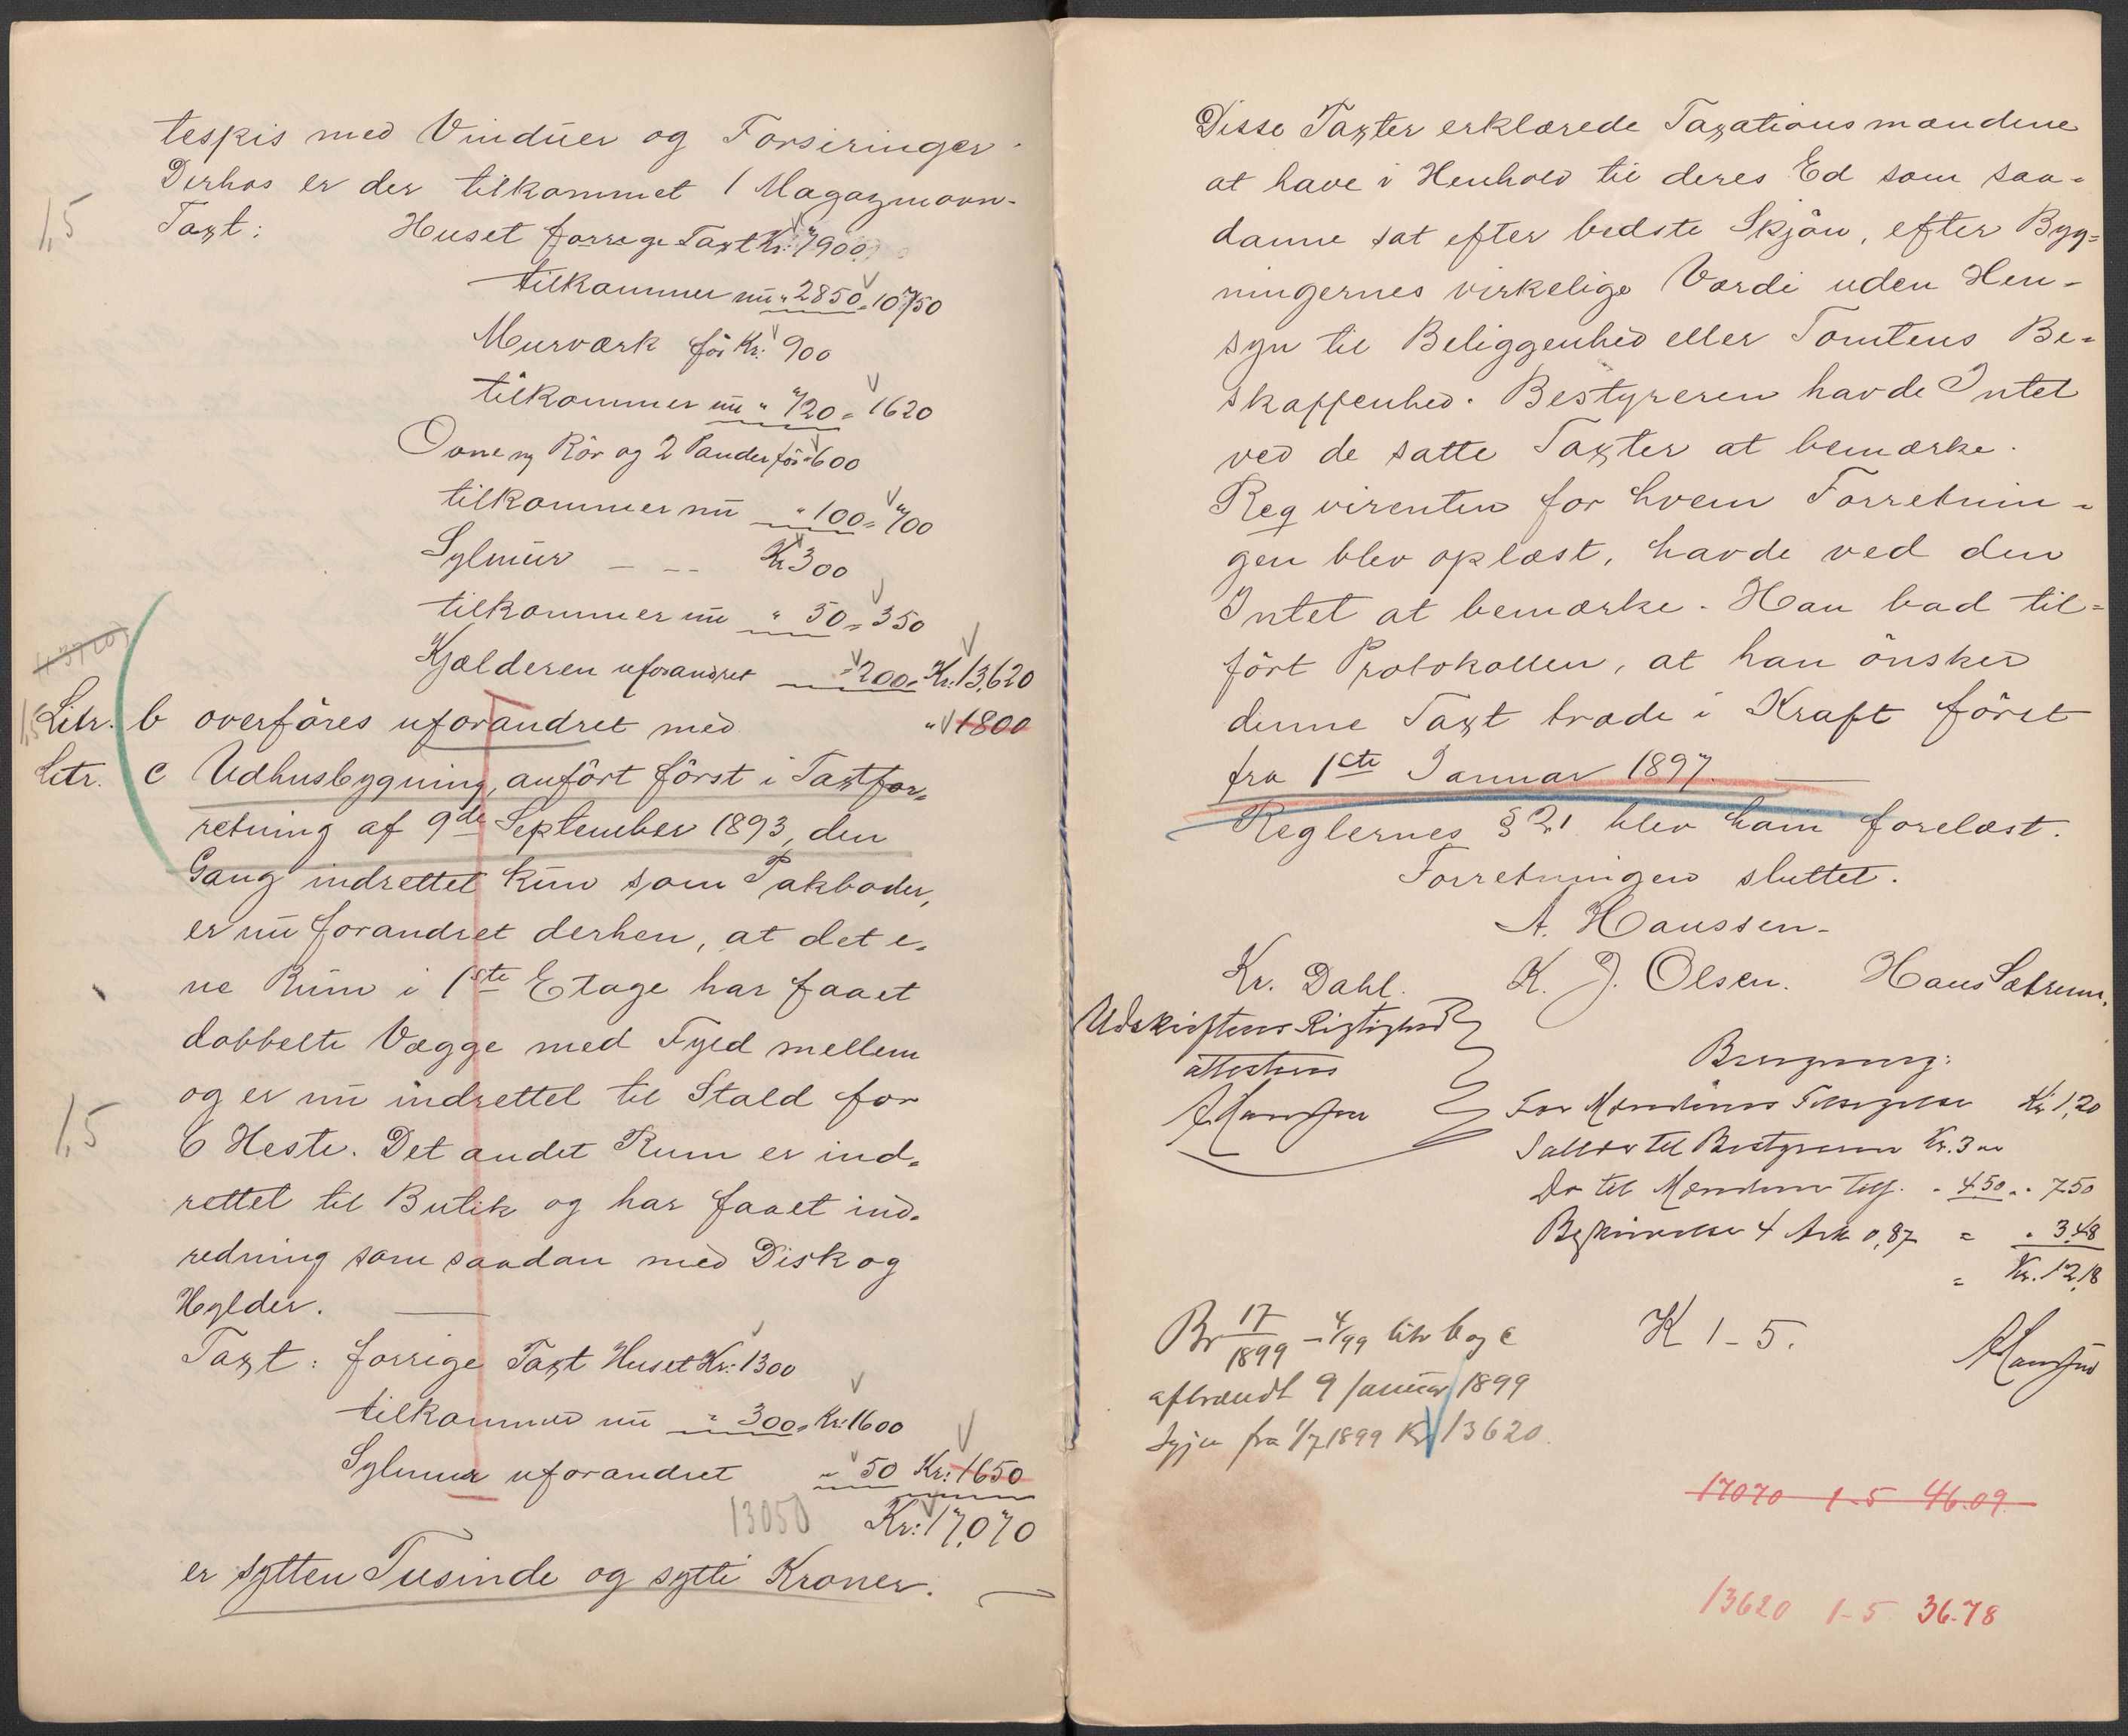 tespis med Vinduer og Forsiringer.
Derhos er der tilkommet 1 Magazinovn.
1,5
Taxt: Huset forrige Taxt Kr: 7900
tilkommer nu " 2850 = 10750
Murværk før Kr: 900
tilkommer nu " 720 = 1620
Ovne og Rör og 2 Pander før " 600
tilkommer nu " 100 = 700
Sylmur - - - Kr 300
tilkommer nu " 50 = 350
Kjælderen uforandret " 200 = Kr: 13,620
1,5 Litr. b overföres uforandret med " 1800
Litr. c Udhusbygning, anfört först i Taxtfor=
retning af 9de September 1893, den
Gang indrettet kun som Pakboder,
er nu forandret derhen, at det e=
ne Rum i 1ste Etage har faaet
dobbelte Vægge med Fyld mellem
og er nu indrettet til Stald for
1,5
6 Heste. Det andet Rum er ind=
rettet til Butik og har faaet ind=
redning som saadan med Disk og
Hylder.
Taxt: forrige Taxt Huset Kr: 1300
tilkommer nu " 300 = Kr: 1600
Sylmur uforandret " 50 Kr: 1650
13050 Kr: 17,070
er sytten Tusinde og sytti Kroner.
Disse Taxter erklærede Taxationsmændene
at have i Henhold til deres Ed som saa=
danne sat efter bedste Skjön, efter Byg=
ningernes virkelige Værdi uden Hen=
syn til Beliggenhed eller Tomtens Be=
skaffenhed. Bestyreren havde Intet
ved de satte Taxter at bemærke.
Reqvirenten for hvem Forretnin=
gen blev oplæst, havde ved den
Intet at bemærke. Han bad til=
fört Protokollen, at han önsker
denne Taxt træde i Kraft först
fra 1ste Januar 1897.
Reglernes § 21 blev ham forelæst.
Forretningen sluttet.
A. Hanssen.
Kr. Dahl. K. J. Olsen. Hans Sætrum.
Udskriftens Rigtighed
attesteres
A Hanssen
Beregning:
For Mændenes Tilsigelse Kr 1,20
Salær til Bestyreren Kr. 3 "
Do til Mændene tils. " 4.50 " 7.50
Beskrivelse 4 Ark 0,87 = " 3.48
= Kr. 12,18
A Hanssen
Br 17/1899 - 4/99 litr b og c
K 1-5.
afbrændt 9 Januar 1899
fra 1/7 1899 Kr 13620.
17070 1-5 46.09
13620 1-5 36.78